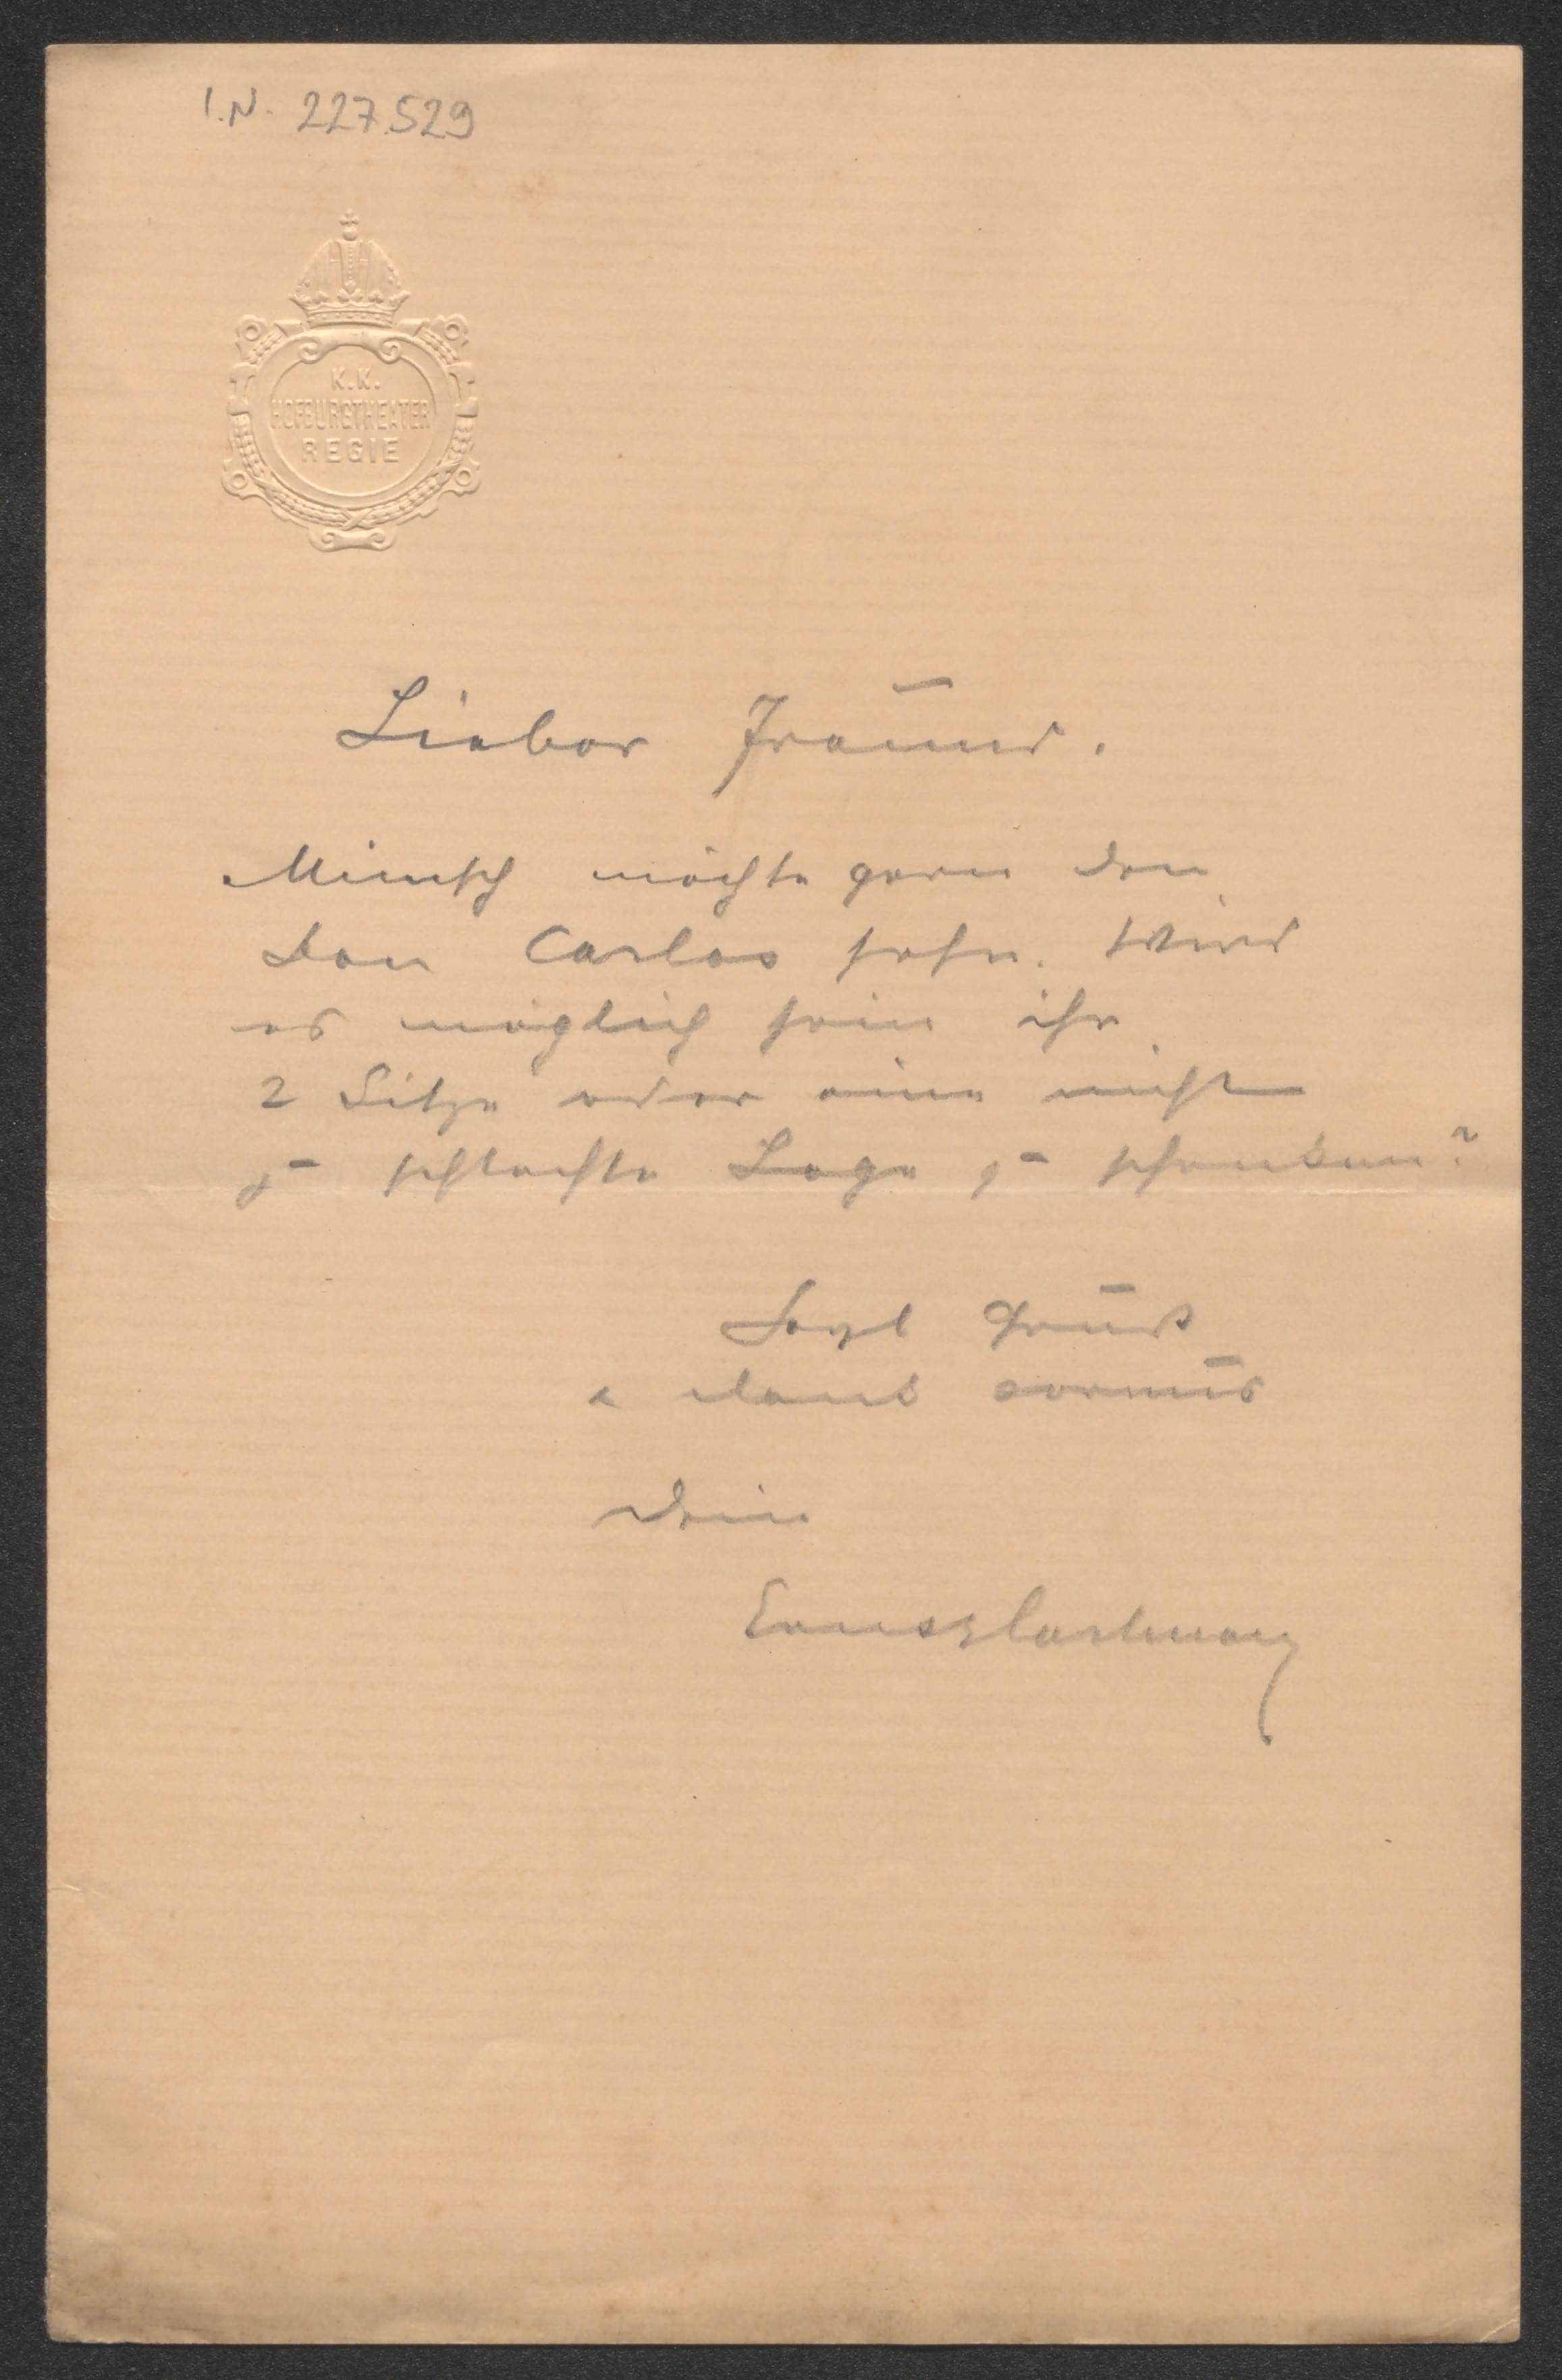 I.N. 227.529
K.K.
HOFBURGTHEATER
REGIE
Lieber Freund.
möchte gern den
Don Carlos sehn. Wird
es möglich sein ihr
2 Sitze oder eine nicht
zu schlechte Loge zu schenken?
Herzl Gruß
u Dank voraus
Dein
Ernst Hartmann